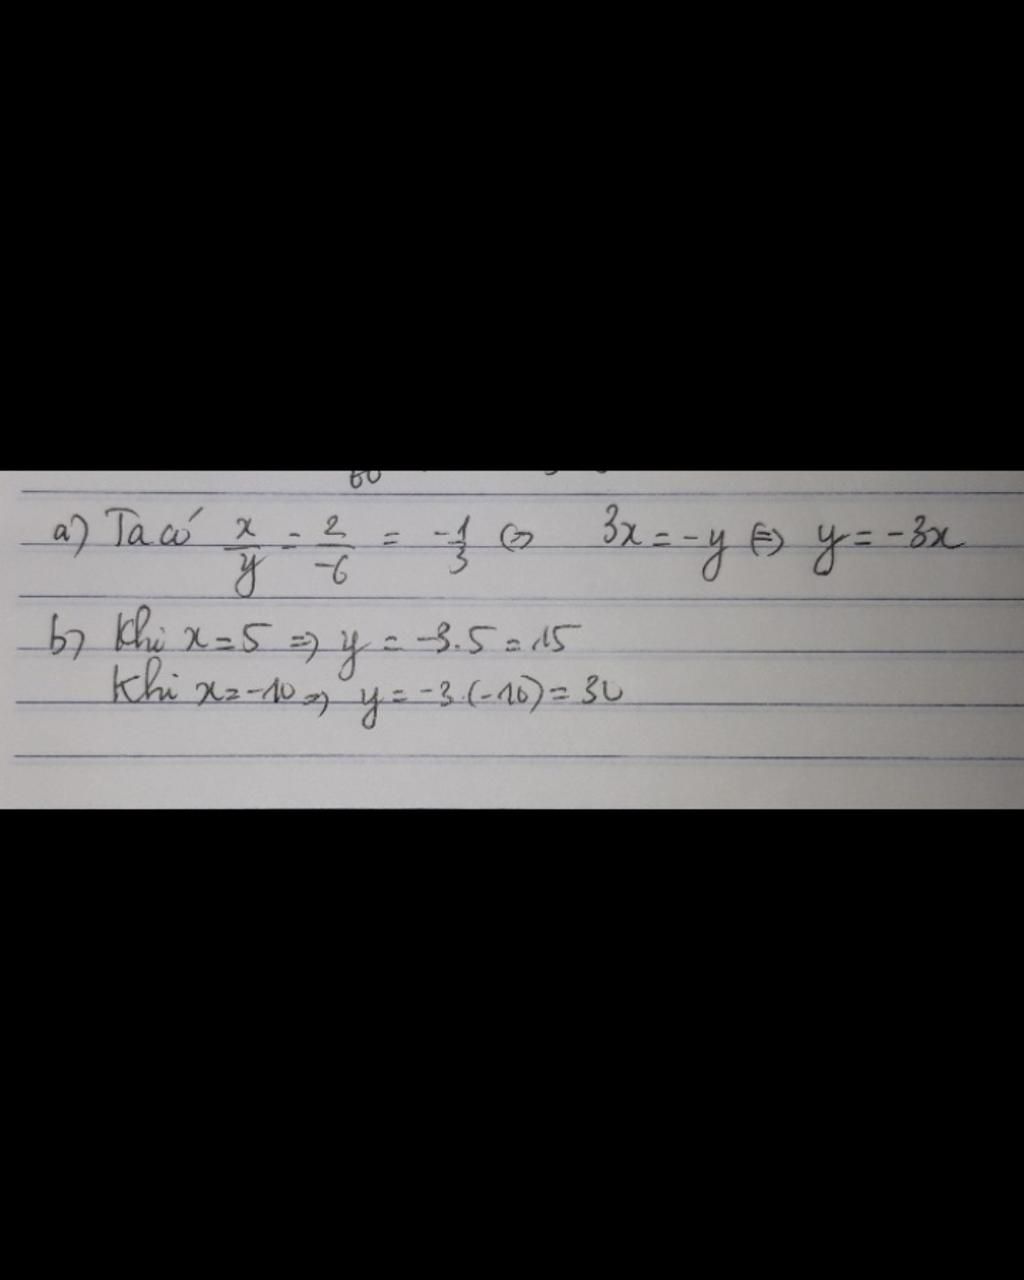 a) Ta có x/y = 2/-6 = -1/3 <=> 3x = -y <=> y = -3x
b) Khi x = 5 => y = -3.5 = 15
Khi x = -10 => y = -3.(-10) = 30